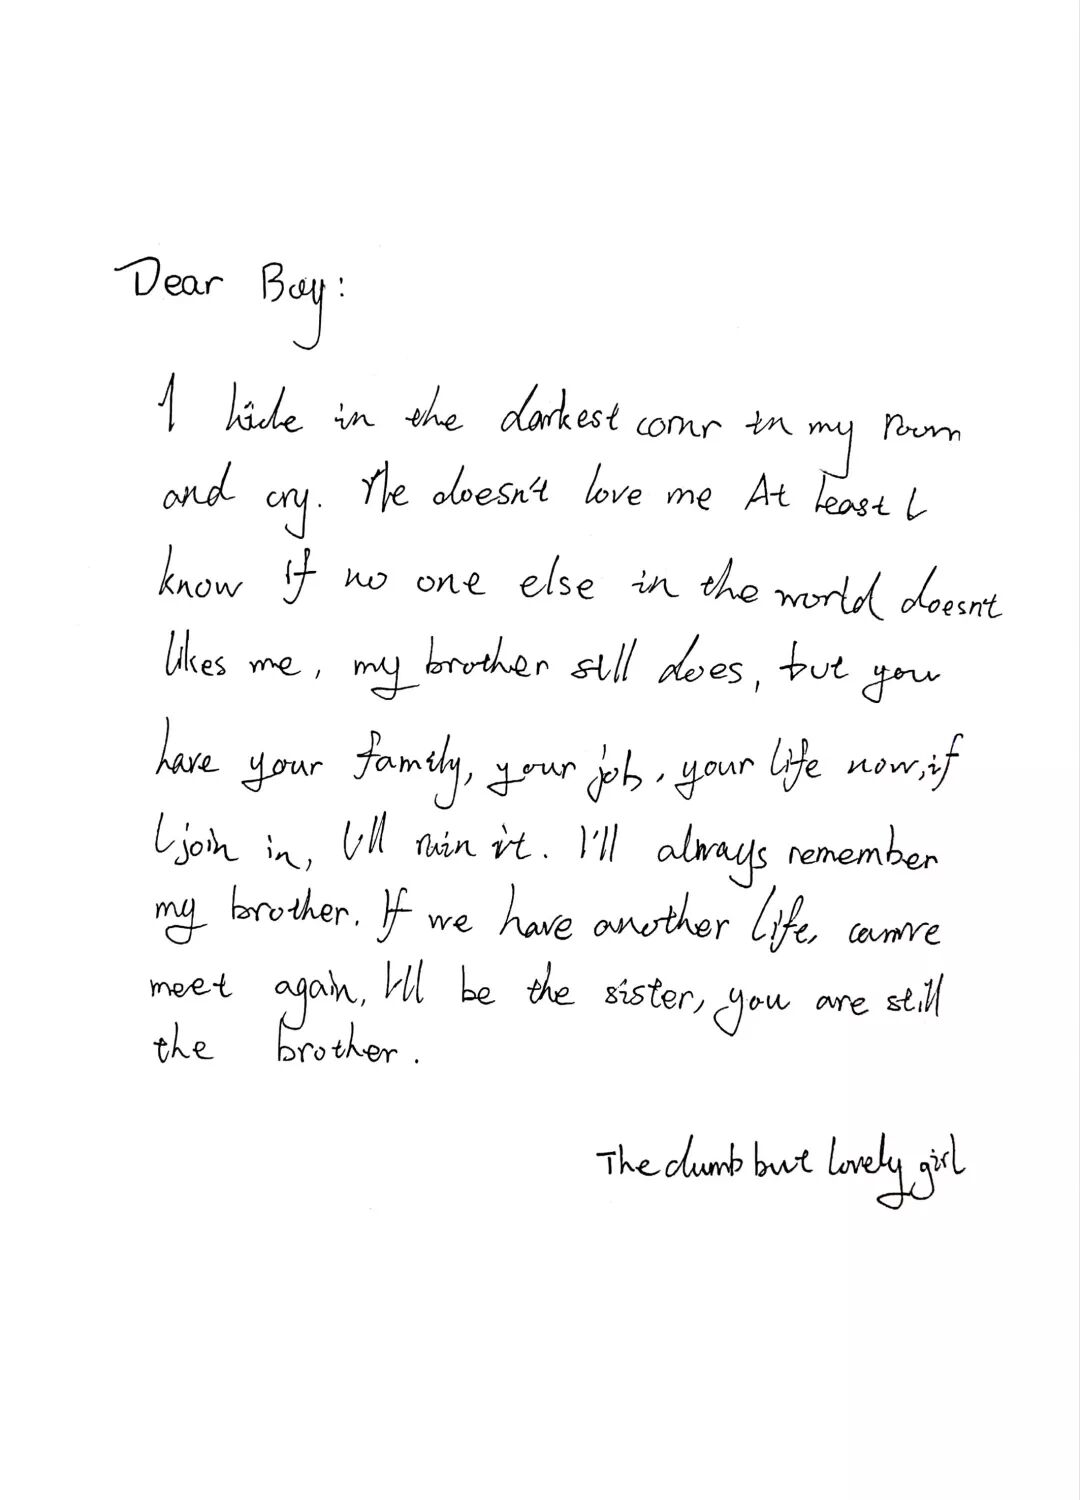 Dear Boy:
I hide in the darkest cornr in my room
and cry. He doesn't love me At least I
know if no one else in the world doesn't
likes me, my brother still does, but you
have your family, your job, your life now, if
I join in, I'll ruin it. I'll always remember
my brother. If we have another life,
meet again, I'll be the sister, you are still
the brother.
The dumb but lovely girl